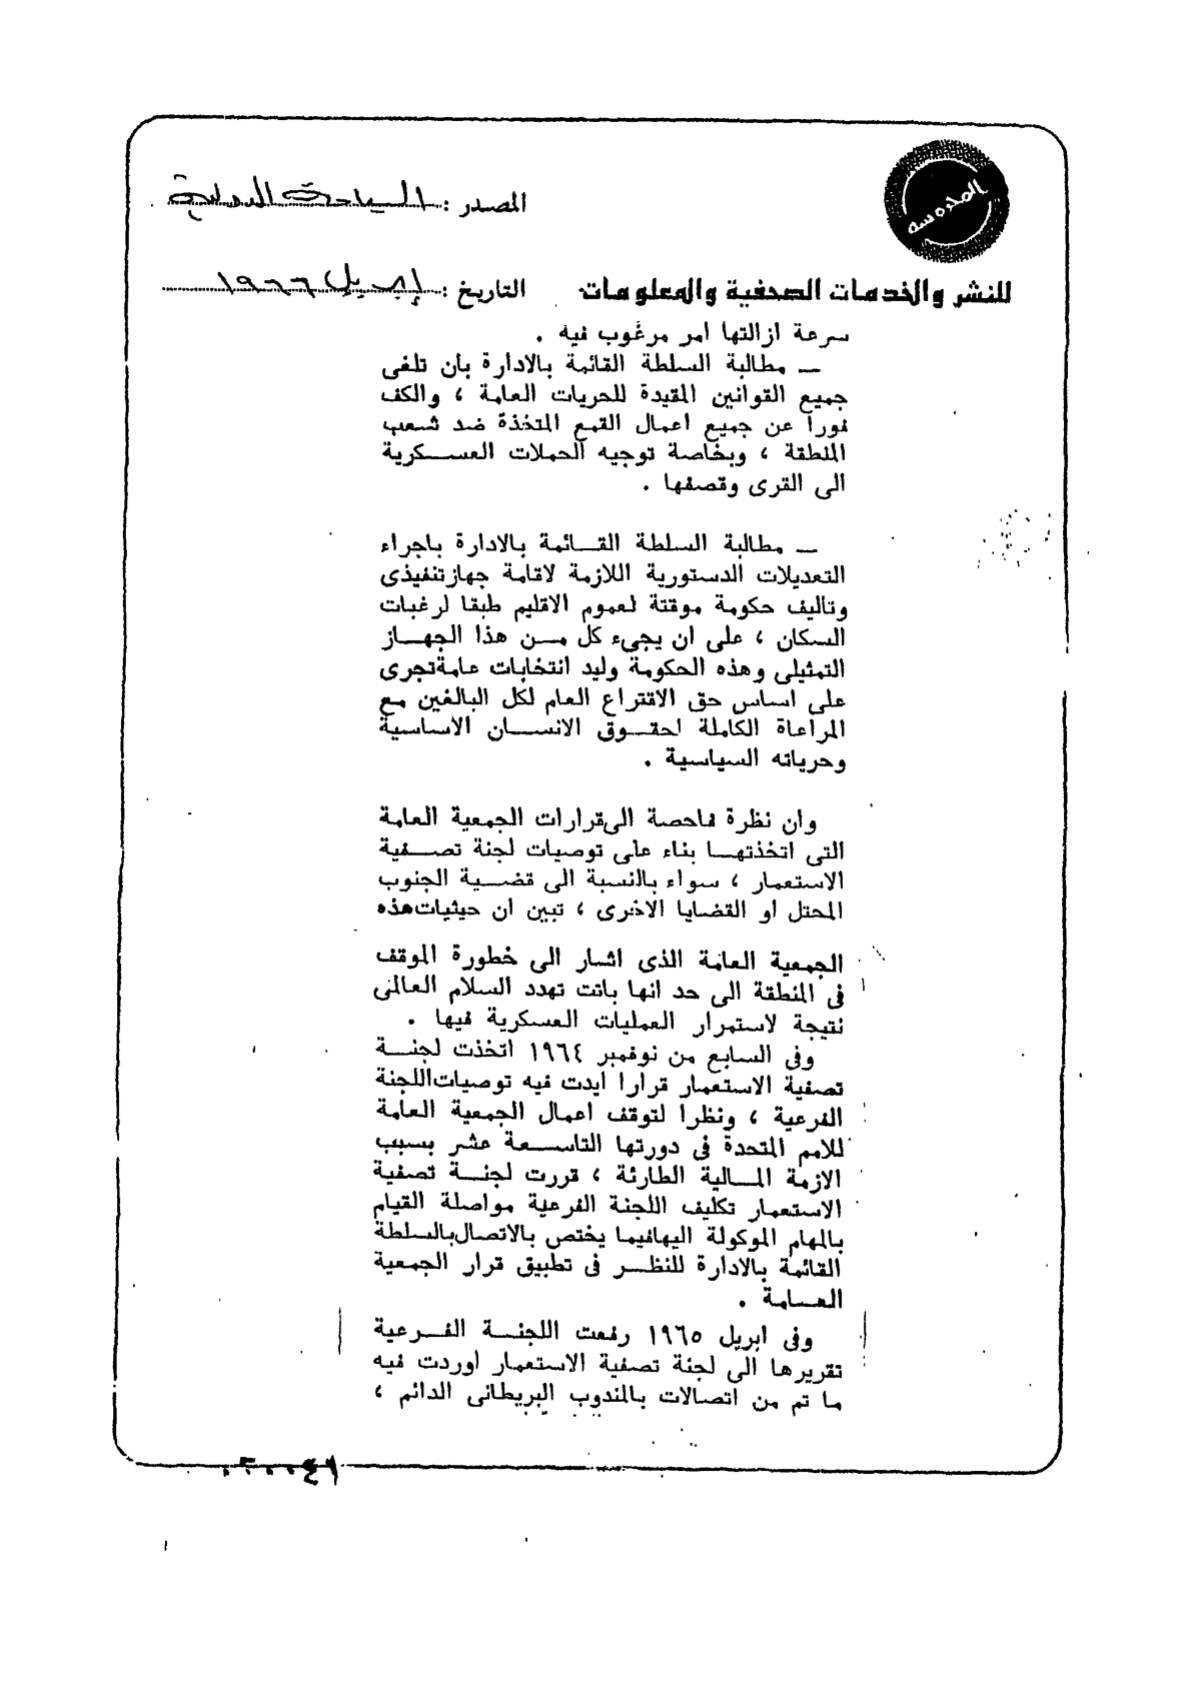 المحروسة
المصدر : السياسة الدولية
للنشر والخدمات الصحفية والمعلومات
التاريخ : إبريل ١٩٦٦
سرعة ازالتها امر مرغوب فيه .
— مطالبة السلطة القائمة بالادارة بان تلغى
جميع القوانين المقيدة للحريات العامة ، والكف
فورا عن جميع اعمال القمع المتخذة ضد شعب
المنطقة ، وبخاصة توجيه الحملات العسكرية
الى القرى وقصفها .
— مطالبة السلطة القائمة بالادارة باجراء
التعديلات الدستورية اللازمة لاقامة جهاز تنفيذى
وتاليف حكومة موقتة لعموم الاقليم طبقا لرغبات
السكان ، على ان يجيء كل من هذا الجهاز
التمثيلى وهذه الحكومة وليد انتخابات عامة تجرى
على اساس حق الاقتراع العام لكل البالغين مع
المراعاة الكاملة لحقوق الانسان الاساسية
وحرياته السياسية .
وان نظرة فاحصة الى قرارات الجمعية العامة
التى اتخذتها بناء على توصيات لجنة تصفية
الاستعمار ، سواء بالنسبة الى قضية الجنوب
المحتل او القضايا الاخرى ، تبين ان حيثيات هذه
الجمعية العامة الذى اشار الى خطورة الموقف
فى المنطقة الى حد انها باتت تهدد السلام العالمى
نتيجة لاستمرار العمليات العسكرية فيها .
وفى السابع من نوفمبر ١٩٦٤ اتخذت لجنة
تصفية الاستعمار قرارا ايدت فيه توصيات اللجنة
الفرعية ، ونظرا لتوقف اعمال الجمعية العامة
للامم المتحدة فى دورتها التاسعة عشر بسبب
الازمة المالية الطارئة ، قررت لجنة تصفية
الاستعمار تكليف اللجنة الفرعية مواصلة القيام
بالمهام الموكولة اليها فيما يختص بالاتصال بالسلطة
القائمة بالادارة للنظر فى تطبيق قرار الجمعية
العامة .
وفى ابريل ١٩٦٥ رفعت اللجنة الفرعية
تقريرها الى لجنة تصفية الاستعمار اوردت فيه
ما تم من اتصالات بالمندوب البريطانى الدائم ،